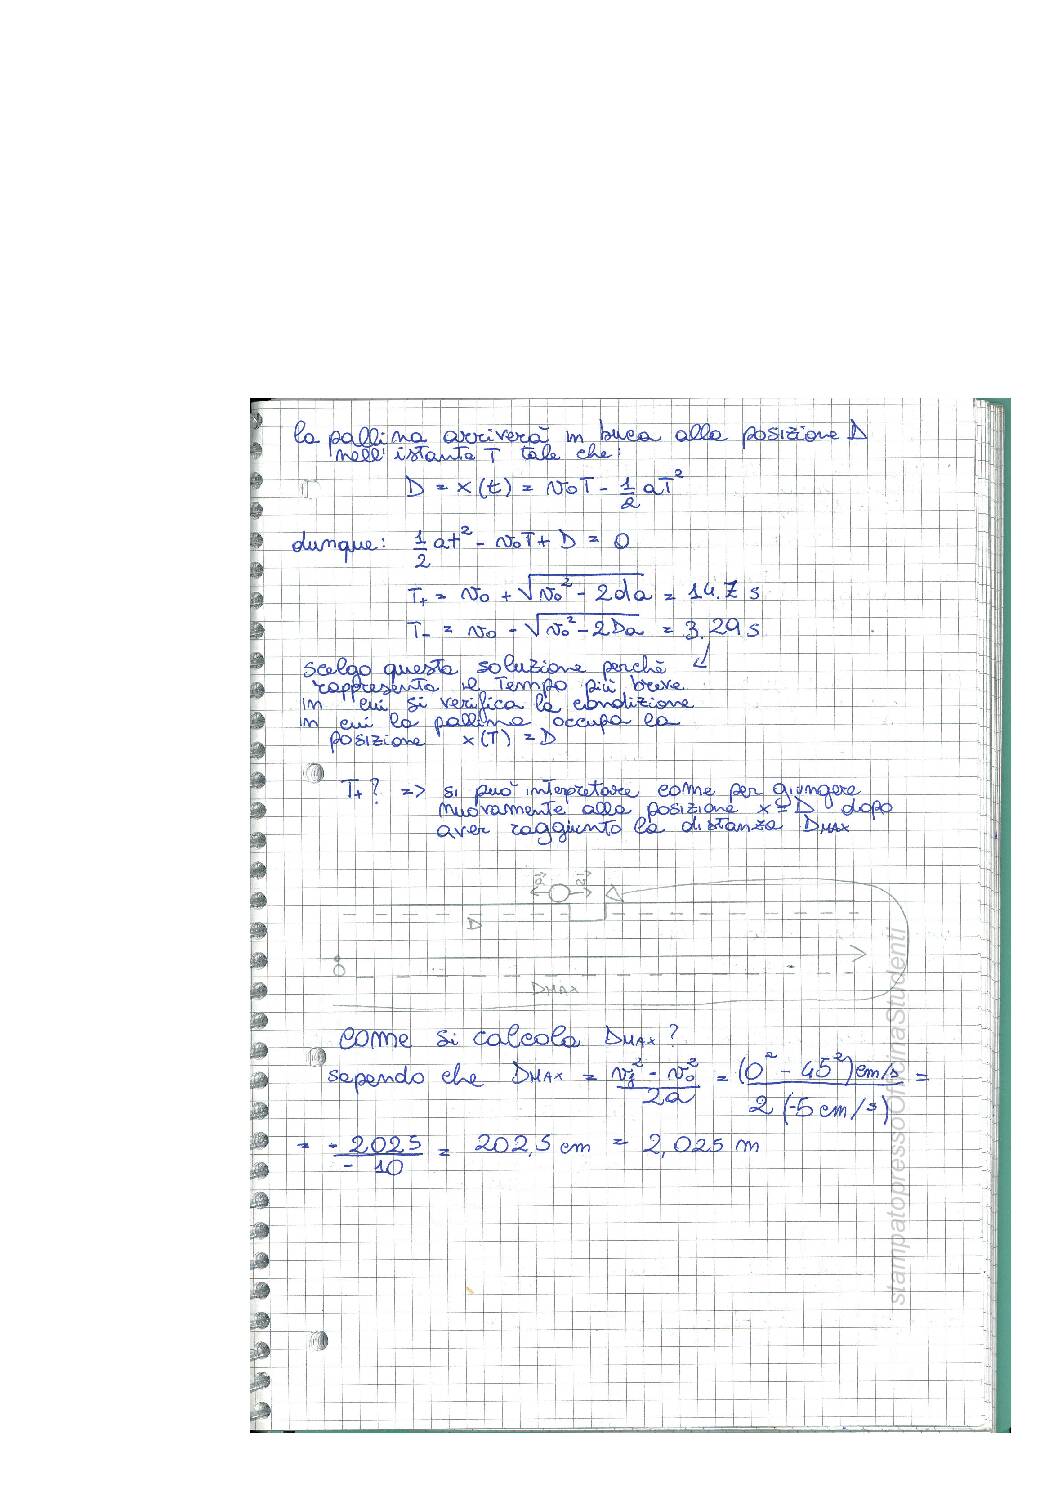 la pallina arriverà in buca alla posizione D
nell'istante T tale che:
D = x(t) = v₀T - 1/2 aT²
dunque: 1/2 at² - v₀T + D = 0
T₊ = v₀ + √(v₀² - 2da) = 14.7 s
T₋ = v₀ - √(v₀² - 2Da) = 3.29 s
scelgo questa soluzione perchè
rappresenta il tempo più breve
in cui si verifica la condizione
in cui la pallina occupa la
posizione x(T) = D
T₊? => si può interpretare come per giungere
nuovamente alla posizione x = D dopo
aver raggiunto la distanza DMAX
D
DMAX
COME si calcola DMAX?
sapendo che DMAX = (vf² - v₀²)/2a = (0² - 45²)cm/s / 2(-5cm/s) =
= -2025/-10 = 202,5 cm = 2,025 m
stampatopressoOfficinaStudenti